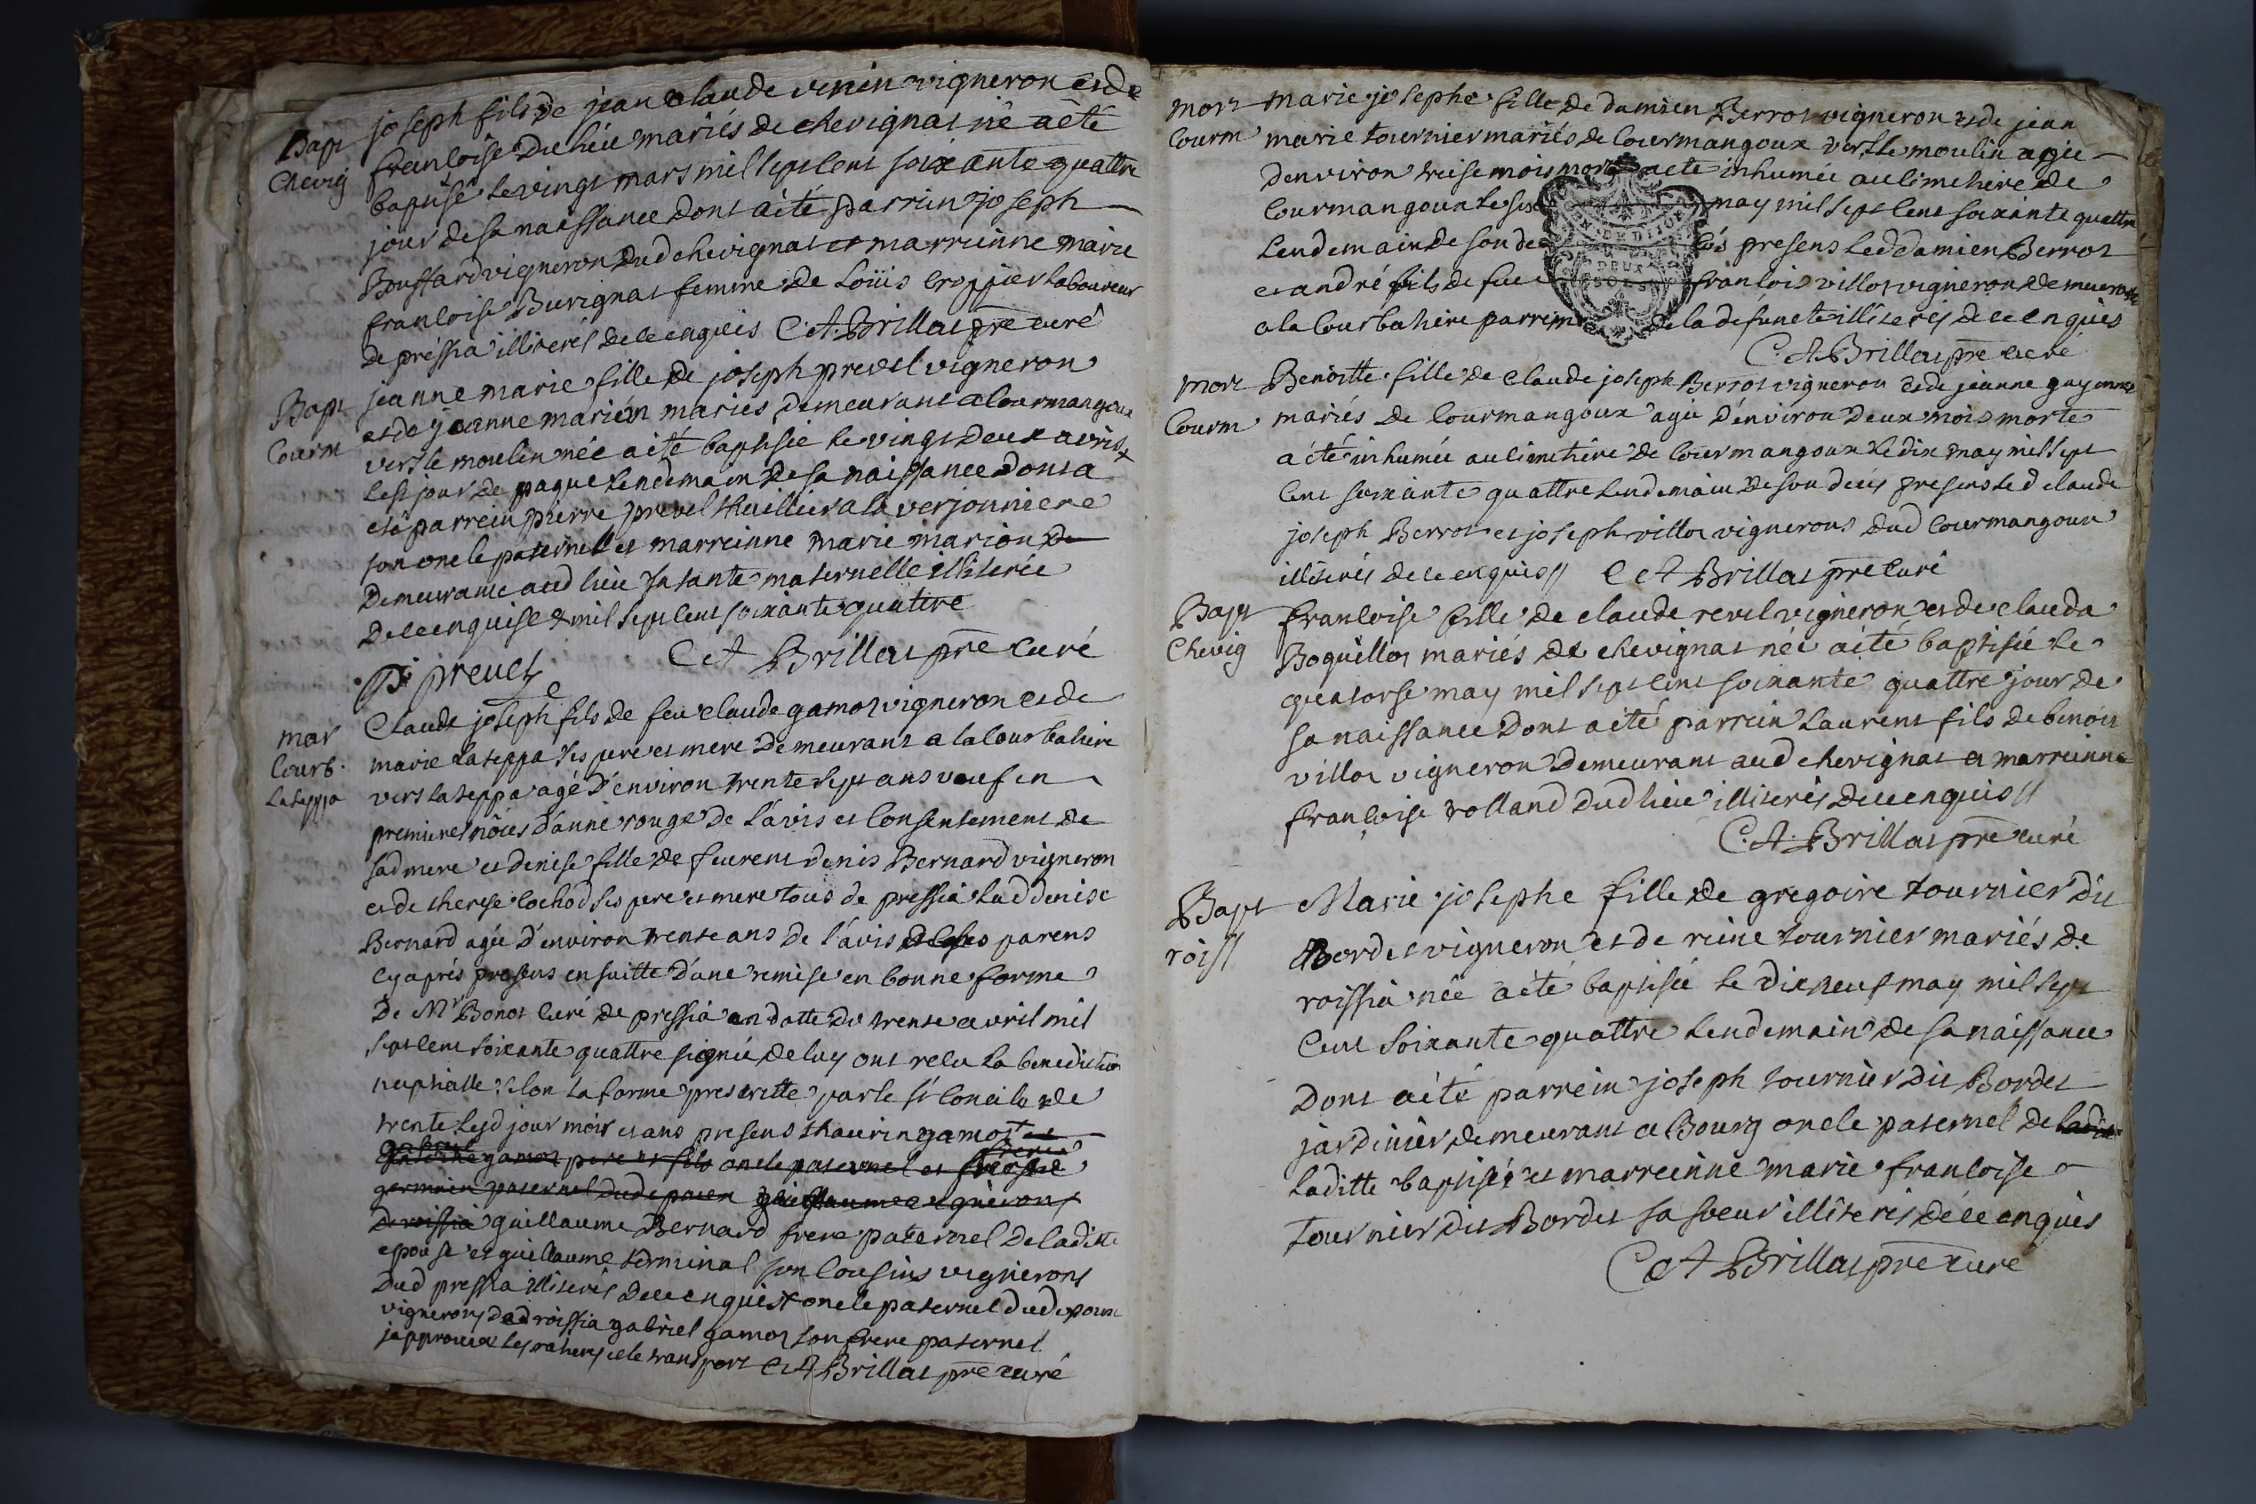 Bapt
Chevig
joseph fils de jean claude venin vigneron et de
francoise du lieu mariés de chevignat né a été
baptisé le vingt mars mil sept cent soixante quattre
jour de sa naissance dont a été parrein joseph
Bouffard vigneron dud chevignat et marreinne marie
francoise Buvignat femme de Loüis croppier laboureur
de préssia illiterés de ce enquis C. A. Brillat pre curé
Bapt
Courm
jeanne marie fille de joseph prevel vigneron
et de jeanne marion mariés demeurant a Courmangoux
vers le moulin née a été baptisée le vingt deux avril
le st jour de paque lendemain de sa naissance dont a
eté parrein pierre prevel thuillier a la verjonniere
son oncle paternel et marreinne marie marion de
demeurante aud lieu sa tante maternelle illiterée
de ce enquise & mil sept cent soixante quattre
C A Brillat pre curé
P prevel
mar
Courb.
la teppa
Claude joseph fils de feu claude gamot vigneron et de
marie lateppa ses pere et mere demeurant a la Courbatiere
vers la teppa agé d'environ trente sept ans veuf en
premieres nôces d'anne rouge de l'avis et consentement de
sad mere et denise fille de feurent denis Bernard vigneron
et de therese cochod ses pere et mere tous de pressia lad denise
Bernard agée d'environ trente ans de l'avis de ses parens
cy aprés presens ensuitte d'une remise en bonne forme
de Mr Bonot curé de pressia en datte du trente avril mil
sept cent soixante quattre signée de luy ont recu la benediction
nuptialle selon la forme prescritte par le st Concile de
trente lesd jour mois et ans presens thaurin gamot et
gamot pere et fils oncle paternel et frere
germain paternel dud epoux guillaume vignerons
de roissia guillaume Bernard frere paternel de laditte
epouse et guillaume terminal son cousins vignerons
dud pressia illiterés de ce enquis oncle paternel dud epoux
vignerons dud roissia gabriel gamot son frere paternel
japprouve les ratures et le transport C A Brillat pre curé
mort
Courm
marie josephe fille de damien Berrot vigneron et de jean
marie tournier mariés de Courmangoux vers le moulin agée
denviron treise mois morte a eté inhumée au cimetiere de
Courmangoux le six may mil sept cent soixante quattre
lendemain de son decés presens led damien Berrot
et andré fils de feu francois villot vigneron de
a la Courbatiere parrein de la defuncte illiterés de ce enquis
C. A Brillat pre curé
DEUX
SOLS
mort
Courm
Benoitte fille de claude joseph Berrot vigneron et de jeanne guyonne
mariés de Courmangoux agée d'environ deux mois morte
a été inhumée au cimetiére de Courmangoux le dix may mil sept
cent soixante quattre lendemain de son decés presens led claude
joseph Berrot et joseph villot vignerons dud Courmangoux
illiterés de ce enquis // C A Brillat pre curé
Bapt
Chevig
francoise fille de claude revel vigneron et de clauda
Boquillot mariés de chevignat née a été baptisée le
quatorse may mil sept cent soixante quattre jour de
sa naissance dont a été parrein Laurent fils de benoit
villot vigneron demeurant aud chevignat et marreinne
francoise rolland dud lieu illiterés de ce enquis //
C. A. Brillat pre curé
Bapt
rois //
Marie josephe fille de gregoire tournier dit
Bordet vigneron et de reine tournier mariés de
roissia née a été baptisée le dix neuf may mil sept
cent soixante quattre lendemain de sa naissance
dont a été parrein joseph tournier dit Bordet
jardinier demeurant a Bourg oncle paternel de laditte
laditte baptisée et marreinne marie francoise
tournier dit Bordet sa soeur illiterés de ce enquis
C A Brillat pre curé